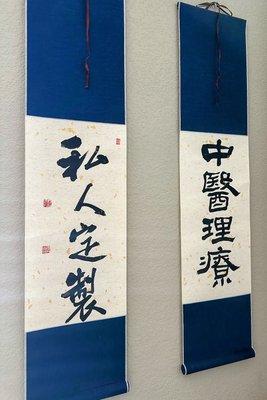 私人定製
中醫理療